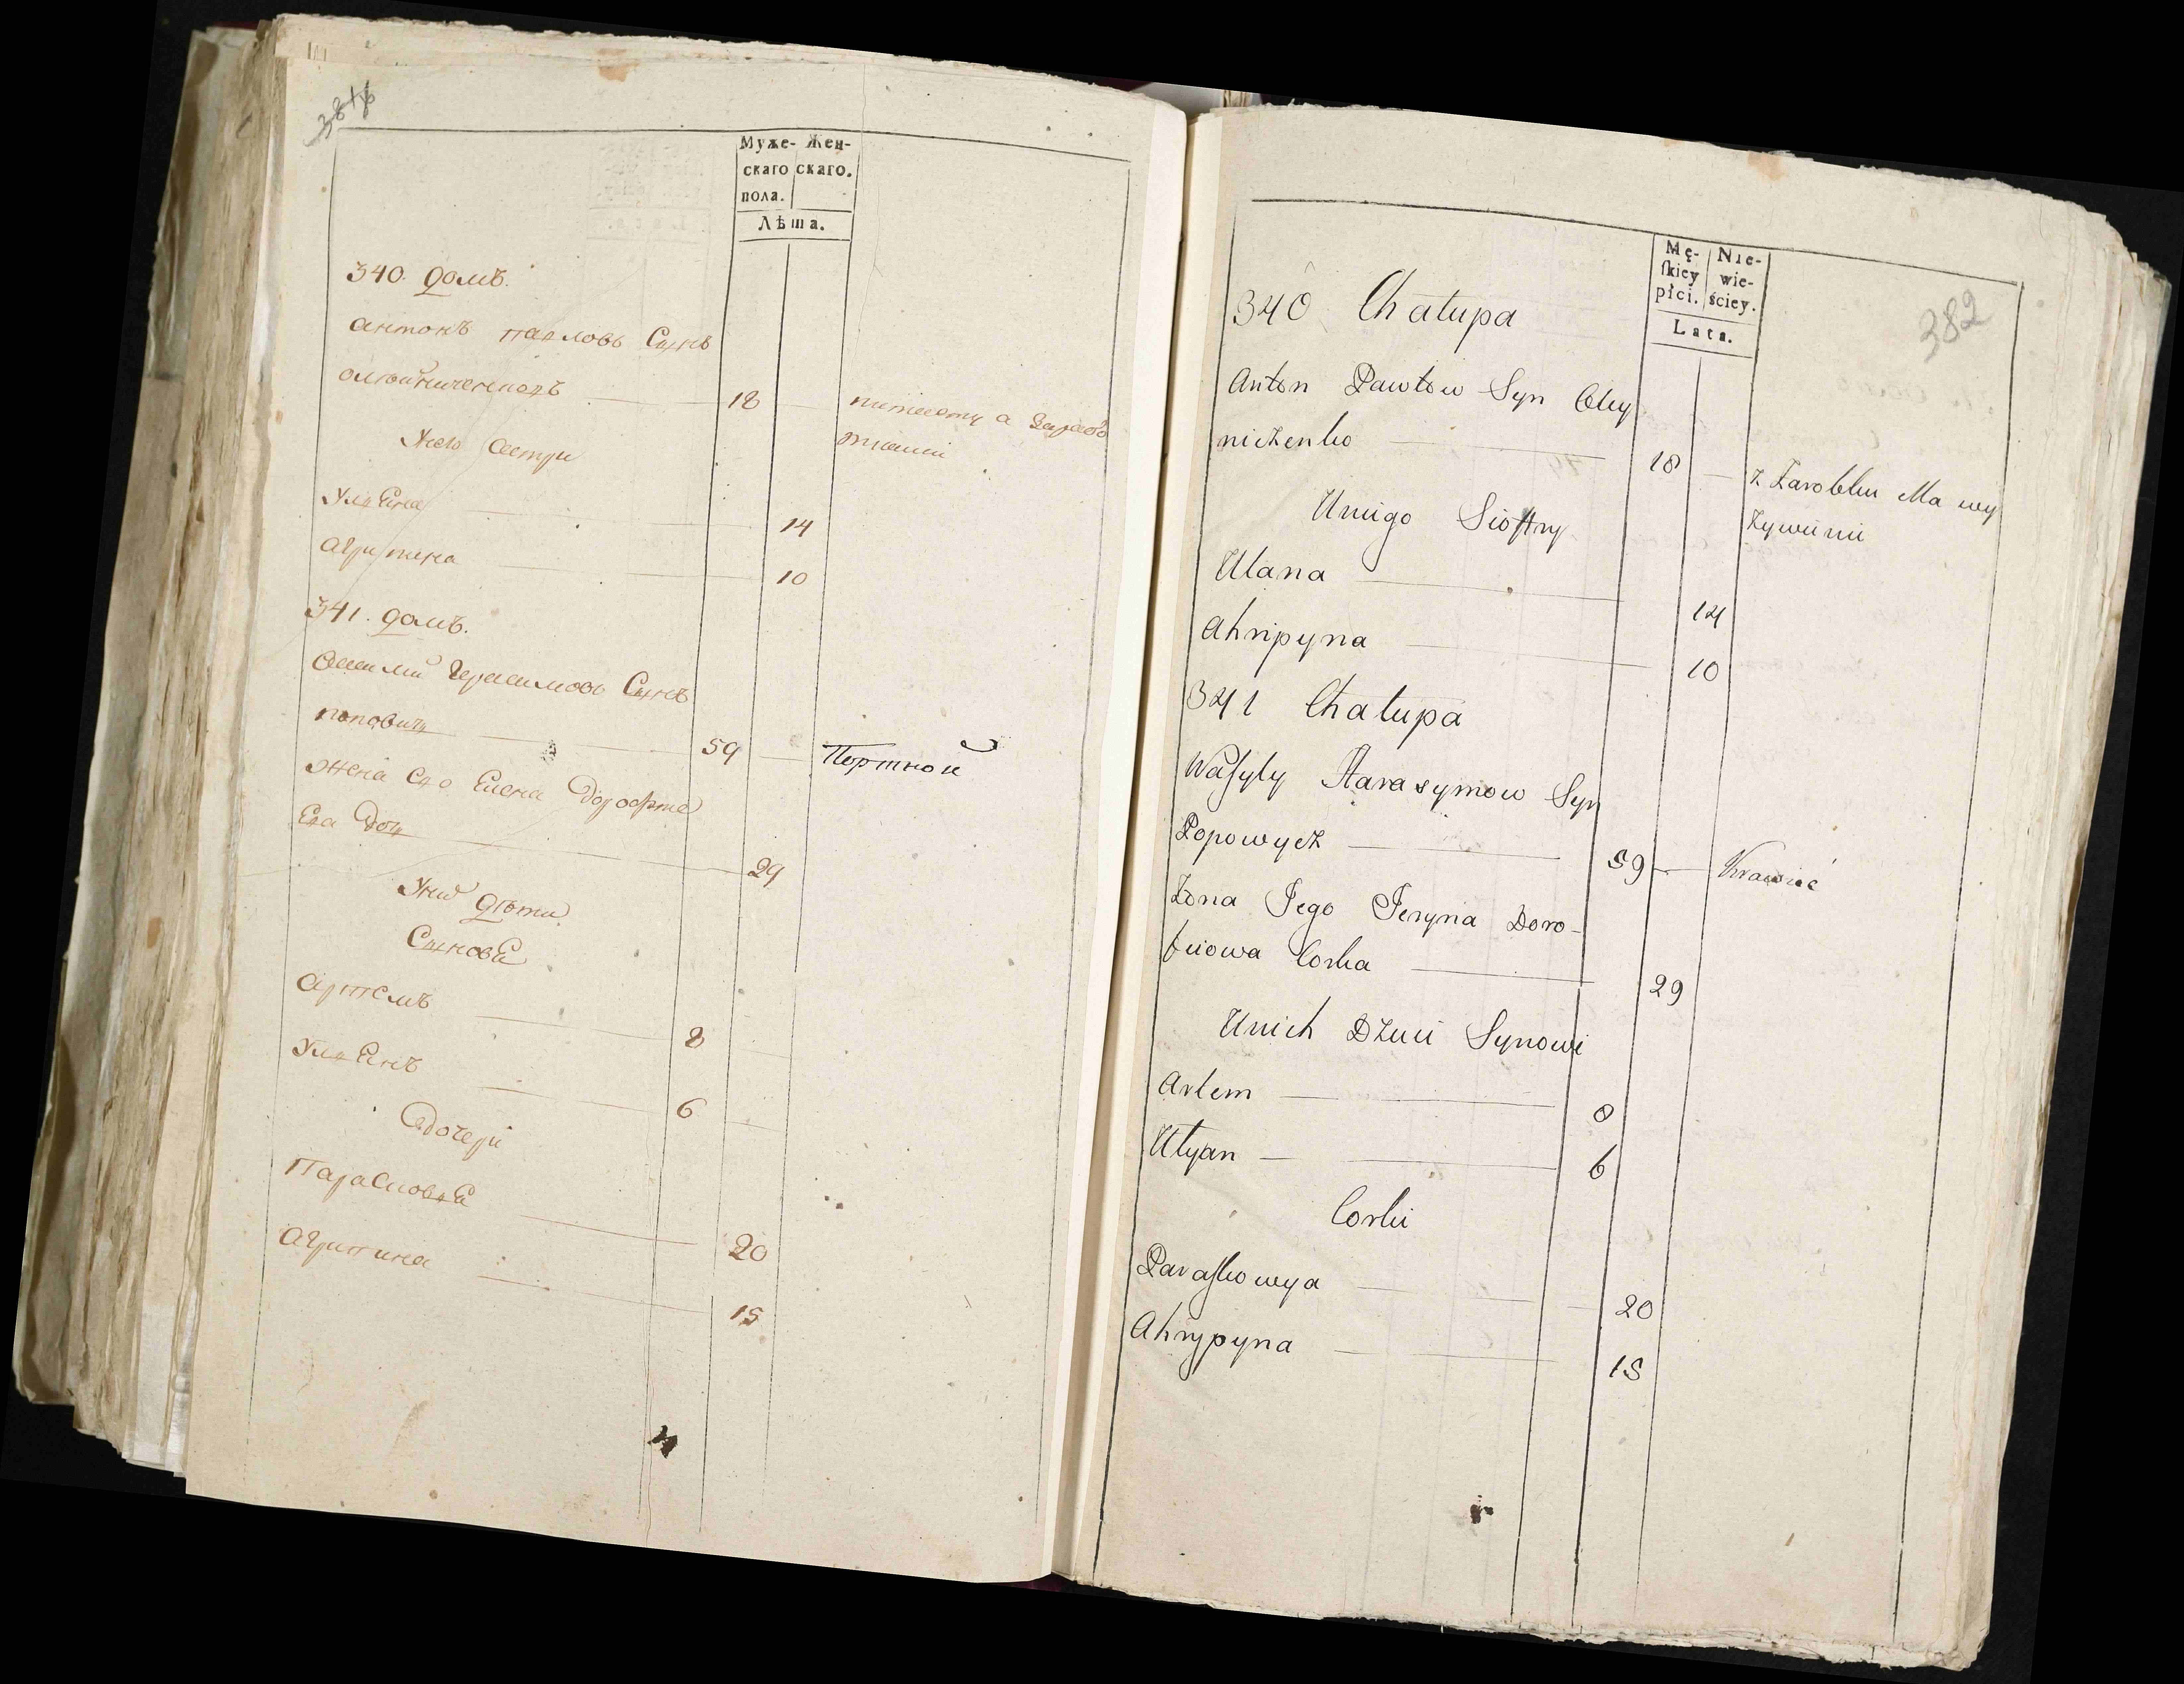 381б
Муже- Жен-
скаго скаго.
пола.
Лѣта.
340. домъ.
Антонъ павловъ Сынъ
олѣйниченкодъ 18
Унего Сестри
Улѣяна 14
Агрипена 10
341. домъ.
Герасимовъ Сынъ
поповичъ 59 Портной
Жена его Елена Дорофѣе
ева Дочь 29
Унихъ дѣти
Сыновья
Артемъ 8
Улѣянъ 6
Дочери
Парасковѣя 20
Агрипина 15
382
Mę- Nie-
skiey wie-
płci. ściey.
Lata.
340 Chałupa
Anton Pawłow Syn Oley
niczenko 18 z Zarobku Ma wy
Żywienie
Uniego Siostry
Ulana 14
Ahripyna 10
341 Chałupa
Wasyly Harasymow Syn
Popowycz 59 Krawiec
Żona Jego Jeryna Doro-
feiowa Corka 29
Unich Dzieci Synowi
Artem 8
Ulyan 6
Corki
Paraskowya 20
Ahrypyna 15